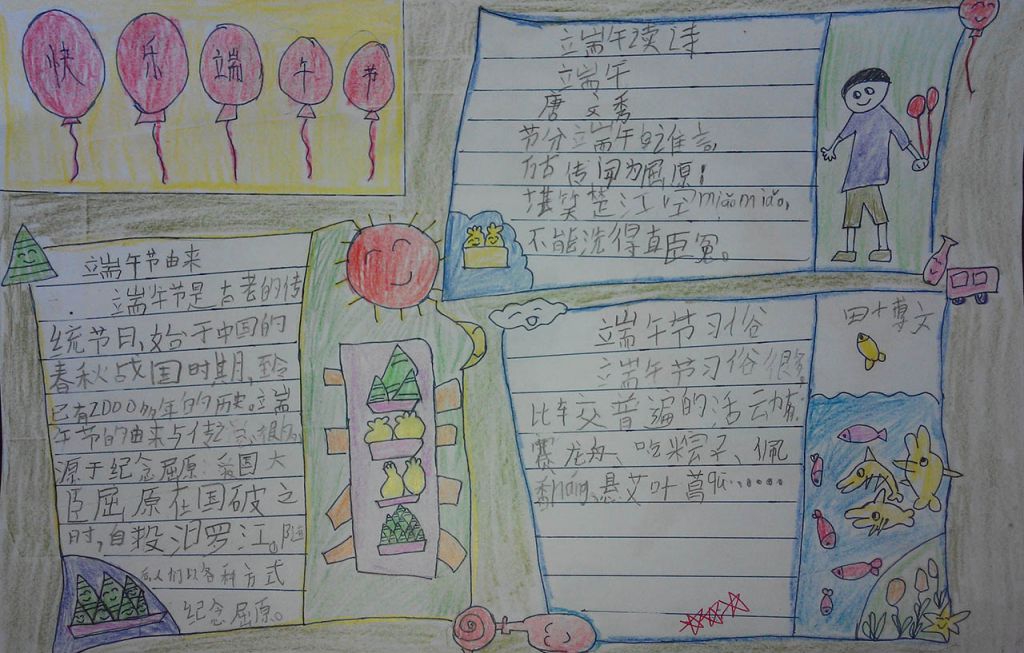 快乐端午节
端午节由来
端午节是古老的传
统节日,始于中国的
春秋战国时期,至今
已有2000多年的历史。端
午节的由来与传说很多
源于纪念屈原:爱国大
臣屈原在国破之
时,自投汨罗江。随
后人们以各种方式
纪念屈原。
端午读诗
端午
唐文秀
节分端午自谁言,
万古传闻为屈原!
堪笑楚江空miǎomiǎo,
不能洗得直臣冤。
端午节习俗
端午节习俗很多
比较普遍的活动有
赛龙舟、吃粽子、佩
香nang、悬艾叶菖
博文